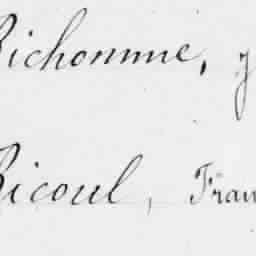 Richomme,
Ricoul, Fran